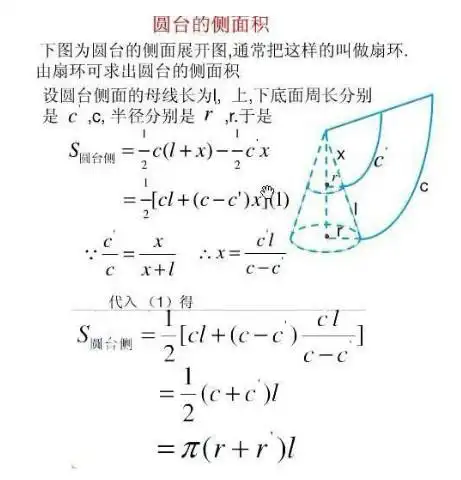 圆台的侧面积
下图为圆台的侧面展开图,通常把这样的叫做扇环.
由扇环可求出圆台的侧面积
设圆台侧面的母线长为l, 上,下底面周长分别
是 c' ,c, 半径分别是 r' ,r.于是
S圆台侧 = 1/2 c(l + x) − 1/2 c'x
= 1/2 [cl + (c − c')x](1)
∵ c'/c = x/(x + l) ∴ x = c'l/(c − c')
代入 (1) 得
S圆台侧 = 1/2 [cl + (c − c') c'l/(c − c')]
= 1/2 (c + c')l
= π(r + r')l
x
c'
r'
c
l
r